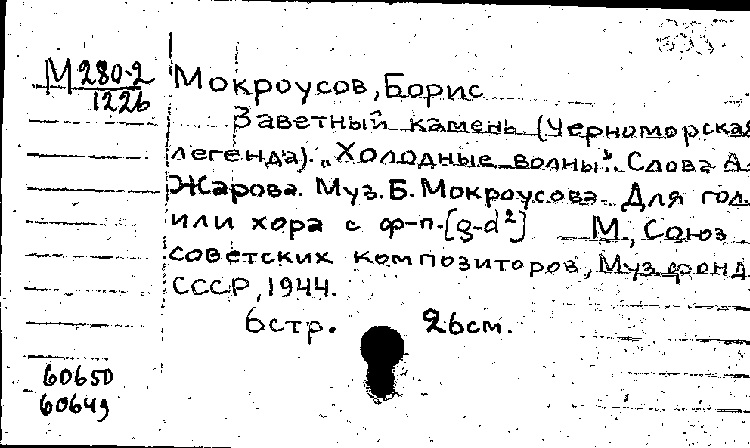 М 280-2
1226
Мокроусов, Борис
Заветный камень (Черноморская
легенда). „Холодные волны". Слова А.
Жарова. Муз. Б. Мокроусова. Для гол.
или хора с ф-п. [g-d²] М., Союз
советских композиторов, Музфонд
СССР, 1944.
6 стр. 26 см.
60650
60649